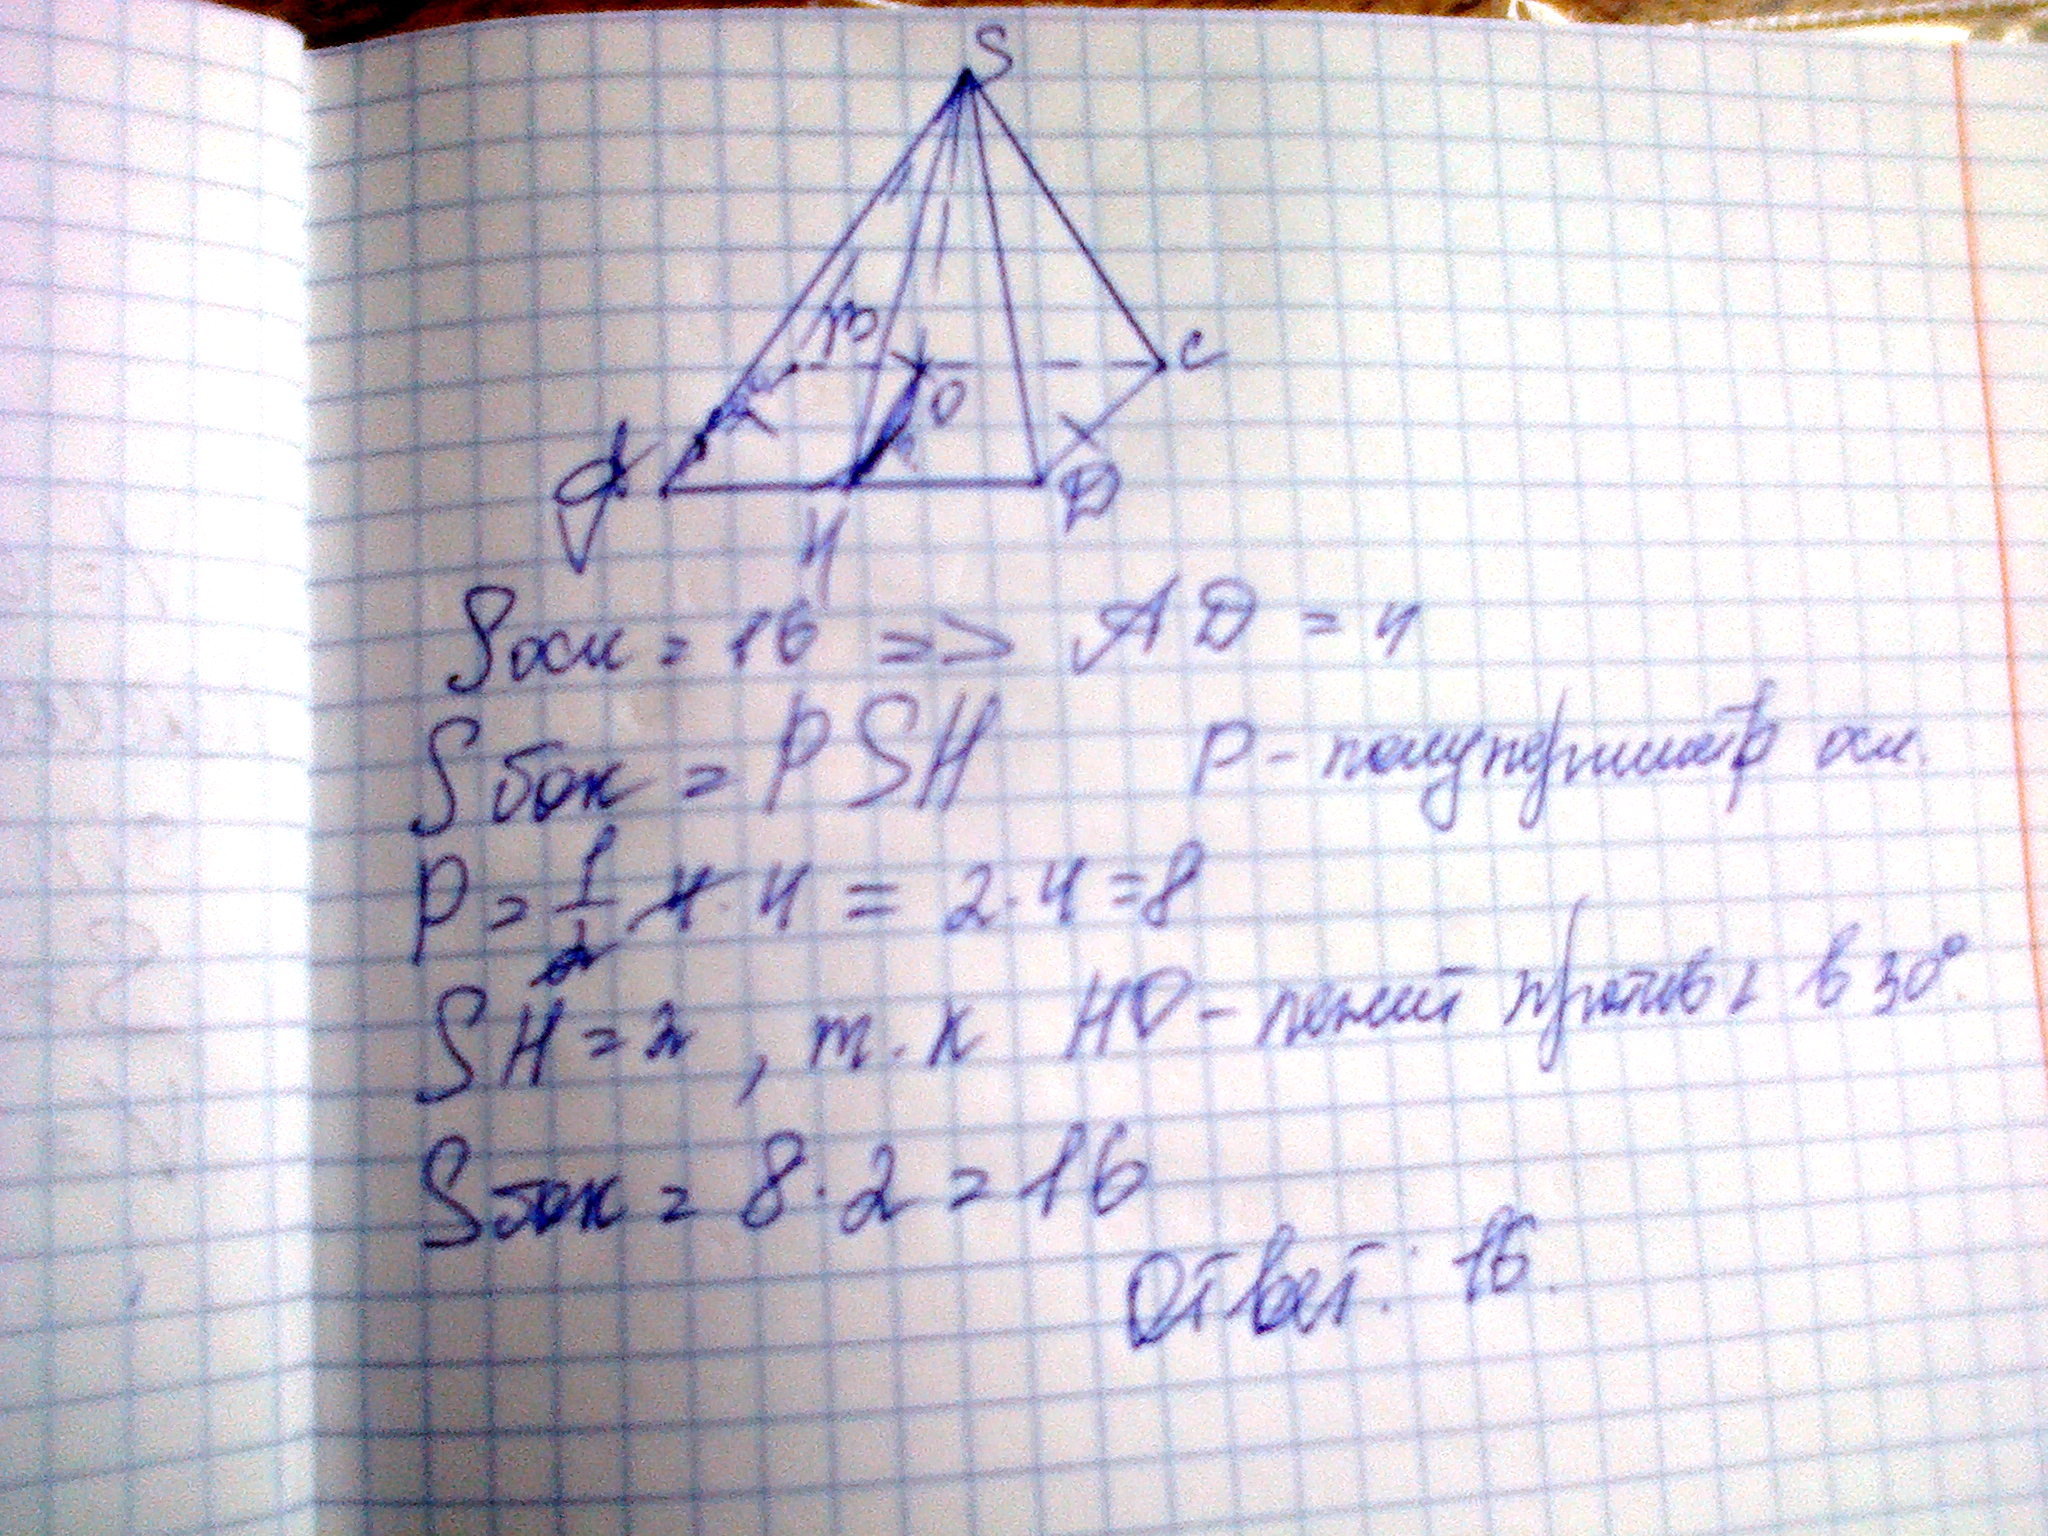 S
В
C
O
A
D
H
Sосн = 16 => AD = 4
Sбок = P SH P - полупериметр осн.
P = 1/2 4 · 4 = 2 · 4 = 8
SH = 2 , т. к HO - лежит против ∠ в 30°.
Sбок = 8 · 2 = 16
Ответ: 16.